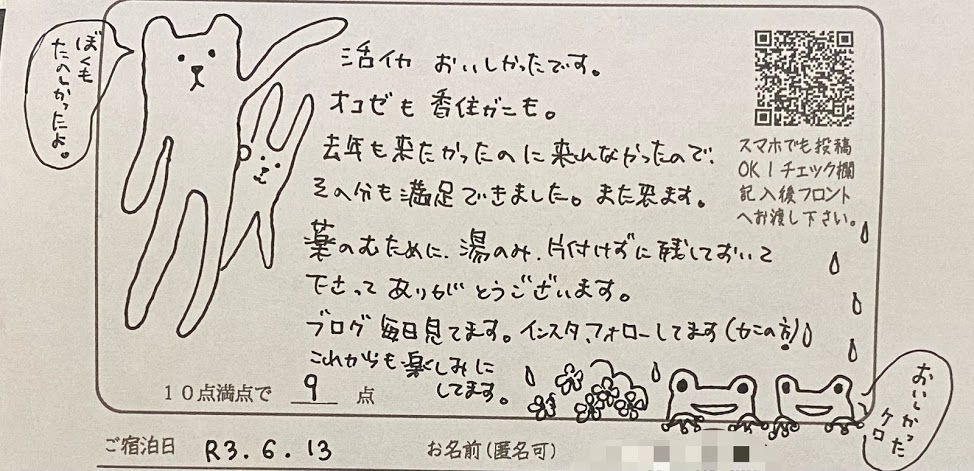 ぼくも
たのしかったよ。
活イカ おいしかったです。
オコゼも 香住ガニも。
去年も来たかったのに来れなかったので、
その分も満足できました。また来ます。
薬のむために、湯のみ、片付けずに残しておいて
下さって ありがとうございます。
ブログ毎日見てます。インスタ、フォローしてます(カニの方!)
これからも楽しみに
してます。
スマホでも投稿
OK!チェック欄
記入後フロント
へお渡し下さい。
10点満点で 9 点
おいしかった
ケロ
ご宿泊日 R3.6.13 お名前(匿名可)